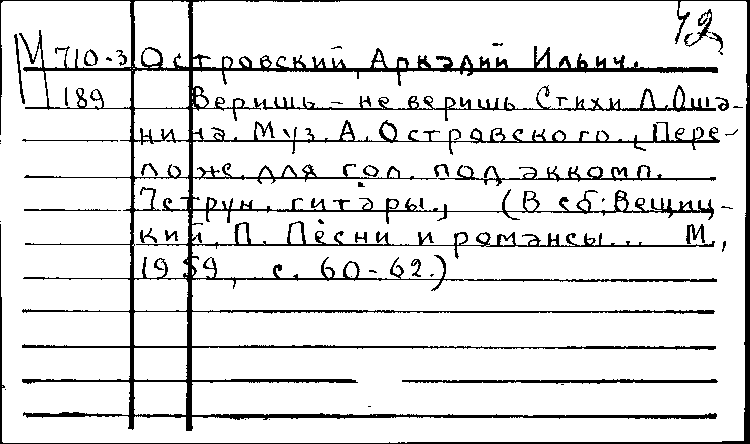 42
М 710-3 Островский, Аркадий Ильич.
189 Веришь – не веришь. Стихи Л. Оша-
нина. Муз. А. Островского. [Пере-
лож. для гол. под аккомп.
7 струн. гитары.] (В сб: Вещиц-
кий, П. Песни и романсы... М.,
1959, с. 60-62.)